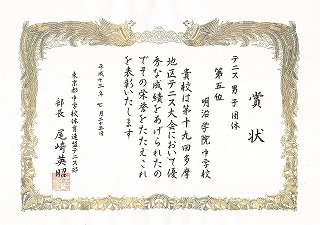 賞状
テニス男子団体
第五位
明治学院中学校
貴校は第十九回多摩
地区テニス大会において優
秀な成績をあげられたの
でその栄誉をたたえこれ
を表彰いたします
平成十二年七月二十五日
東京都中学校体育連盟テニス部
部長 尾崎英昭